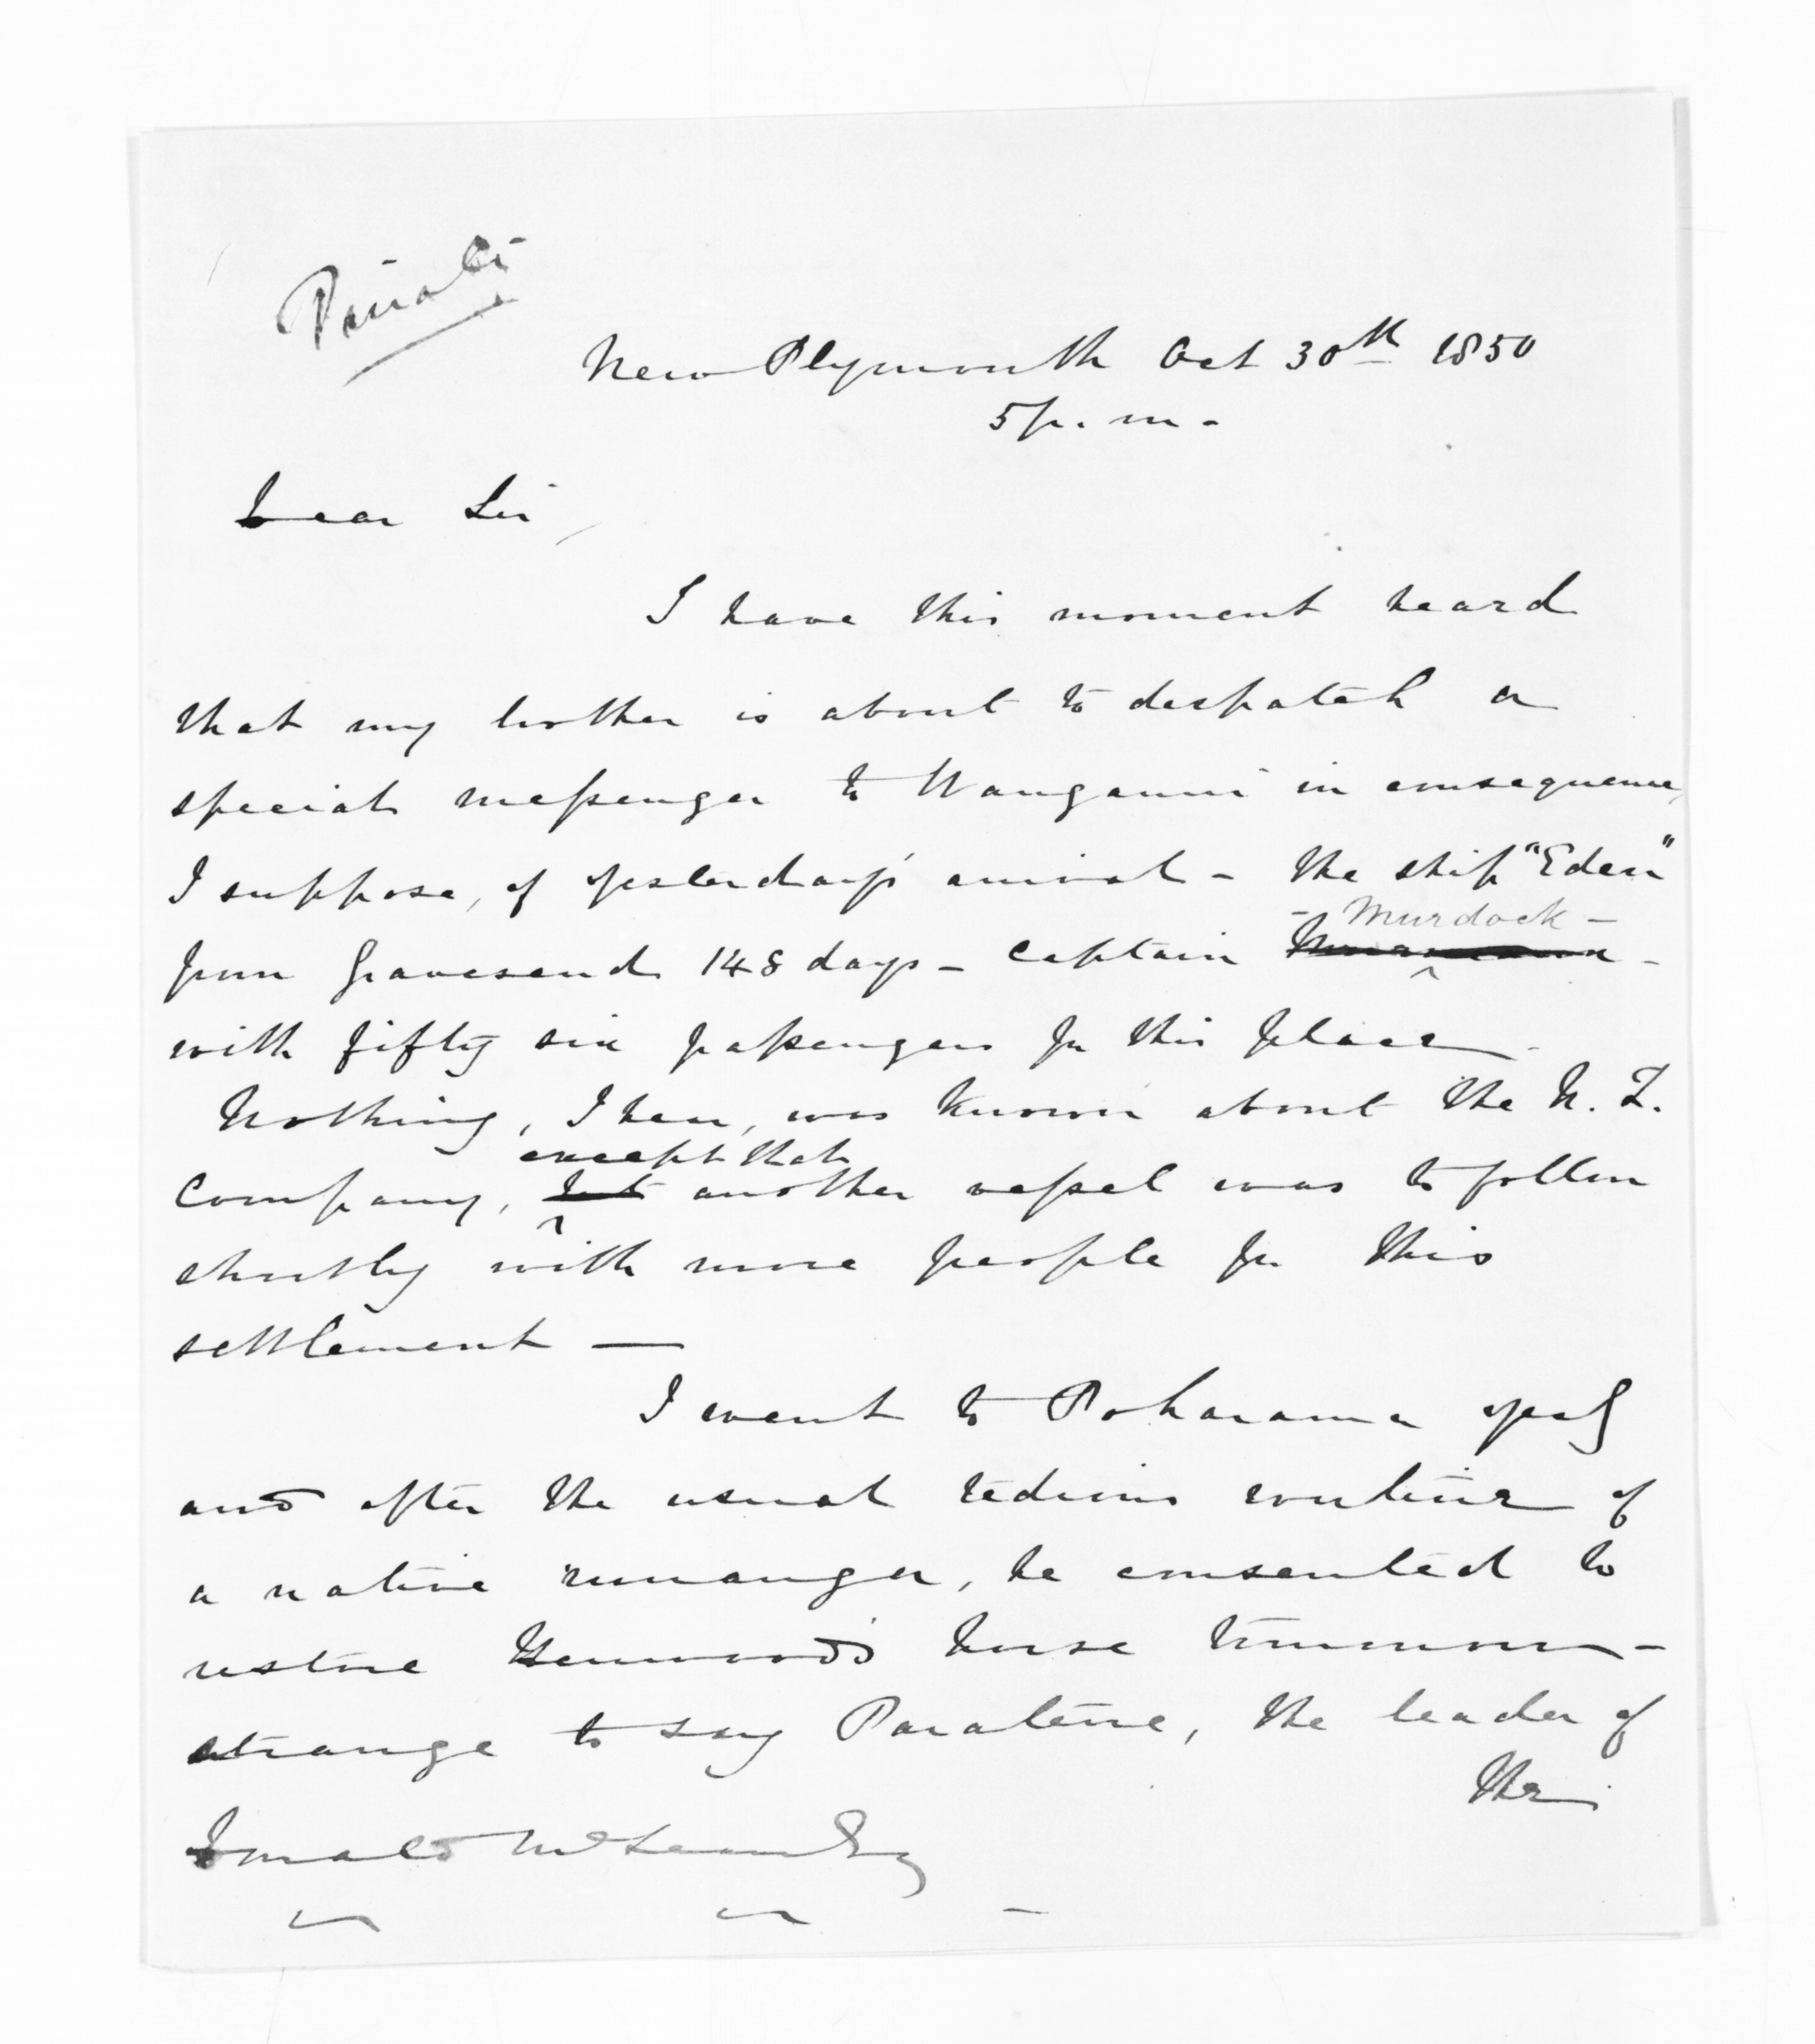 Private
New Plymouth Oct 30th 1850
5 p. m.
Dear Sir,
I have this moment heard
that my brother is about to despatch a
special messenger to Wanganui in consequence,
I suppose, of yesterday's arrival - the ship "Eden"
- Murdock -
from Gravesend 148 days - Captain
with fifty six passengers for this place
Nothing, I hear, was known about the N. Z.
except that
Company, but another vessel was to follow
shortly with more people for this
settlement —
I went to Poharama yesty
and after the usual tedious routine of
a native runanga, he consented to
restore Henwood's horse tomorrow -
strange to say Paratene, the leader of
the
Donald McLean Esq